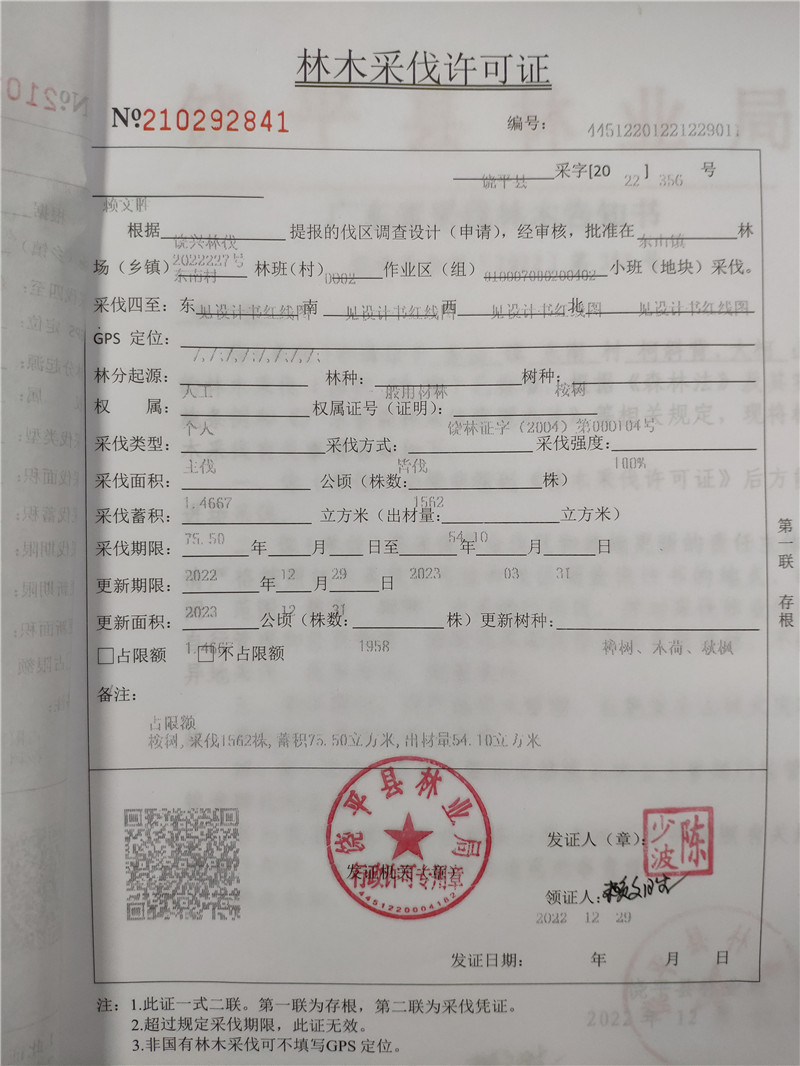 林木采伐许可证
№210292841
编号: 445122012212290
饶平县 采字[20 22 ] 356 号
根据 饶兴林伐2022227号 提报的伐区调查设计（申请），经审核，批准在 东山镇 林
场（乡镇） 东南村 林班（村） 0002 作业区（组） 小班（地块）采伐。
采伐四至：东 见设计书红线图 南 见设计书红线图 西 见设计书红线图 北 见设计书红线图
GPS 定位： /,/;/,/;/,/;/,/;
林分起源： 人工 林种： 一般用材林 树种： 桉树
权 属： 个人 权属证号（证明）： 饶林证字（2004）第000104号
采伐类型： 主伐 采伐方式： 皆伐 采伐强度： 100%
采伐面积： 1.4667 公顷（株数： 1562 株）
采伐蓄积： 75.50 立方米（出材量： 54.10 立方米）
采伐期限： 2022 年 12 月 29 日至 2023 年 03 月 31 日
更新期限： 2023 年 12 月 31 日
更新面积： 1.4667 公顷（株数： 1958 株）更新树种： 樟树、木荷、枫
□占限额 □不占限额
备注：
占限额
桉树,采伐1562株,蓄积75.50立方米,出材量54.10立方米
饶平县林业局
行政许可专用章
4451220004182
发证机关（章）
发证人（章）：
陈少波
领证人：
2022 12 29
发证日期： 年 月 日
注：1.此证一式二联。第一联为存根，第二联为采伐凭证。
2.超过规定采伐期限，此证无效。
3.非国有林木采伐可不填写GPS 定位。
第一联 存根